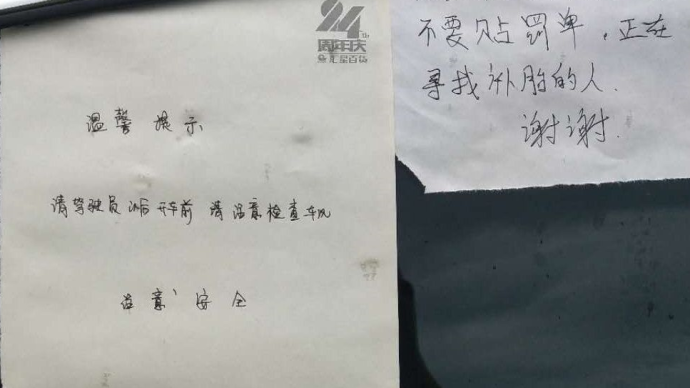 24th
周年庆
汇星百货
温馨提示
请驾驶员以后开车前 请注意检查车况
注意安全
不要贴罚单，正在
寻找补胎的人.
谢谢.